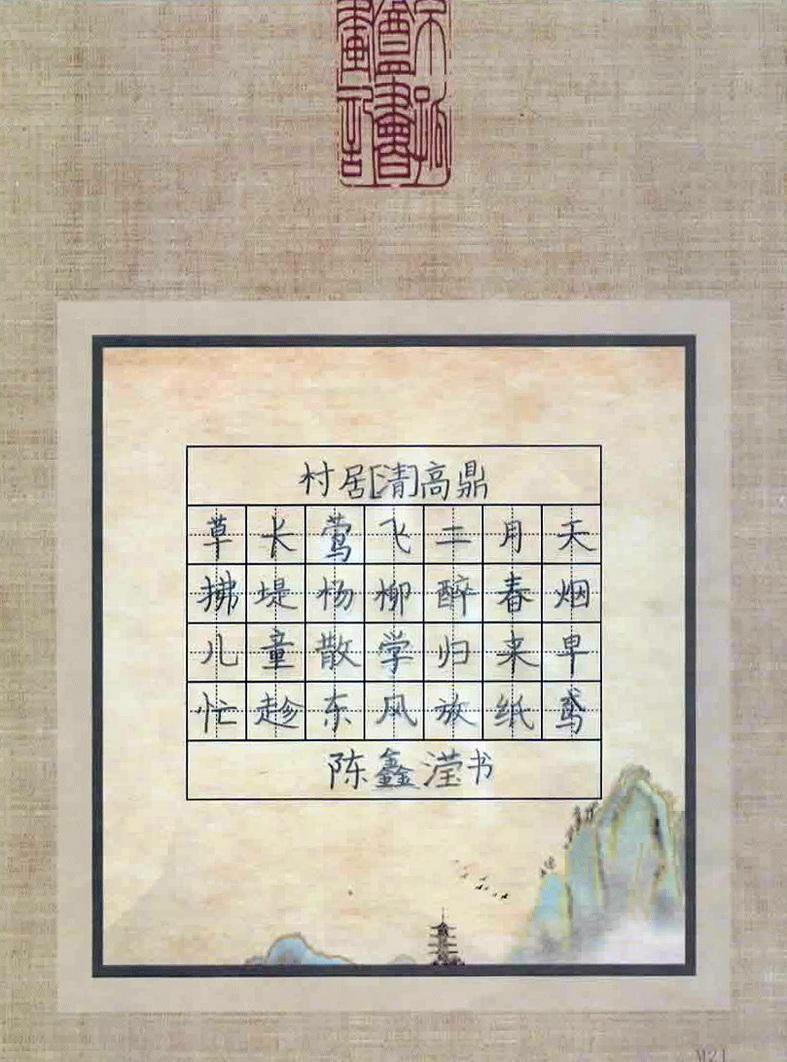 村居[清]高鼎
草长莺飞二月天
拂堤杨柳醉春烟
儿童散学归来早
忙趁东风放纸鸢
陈鑫滢书
M21